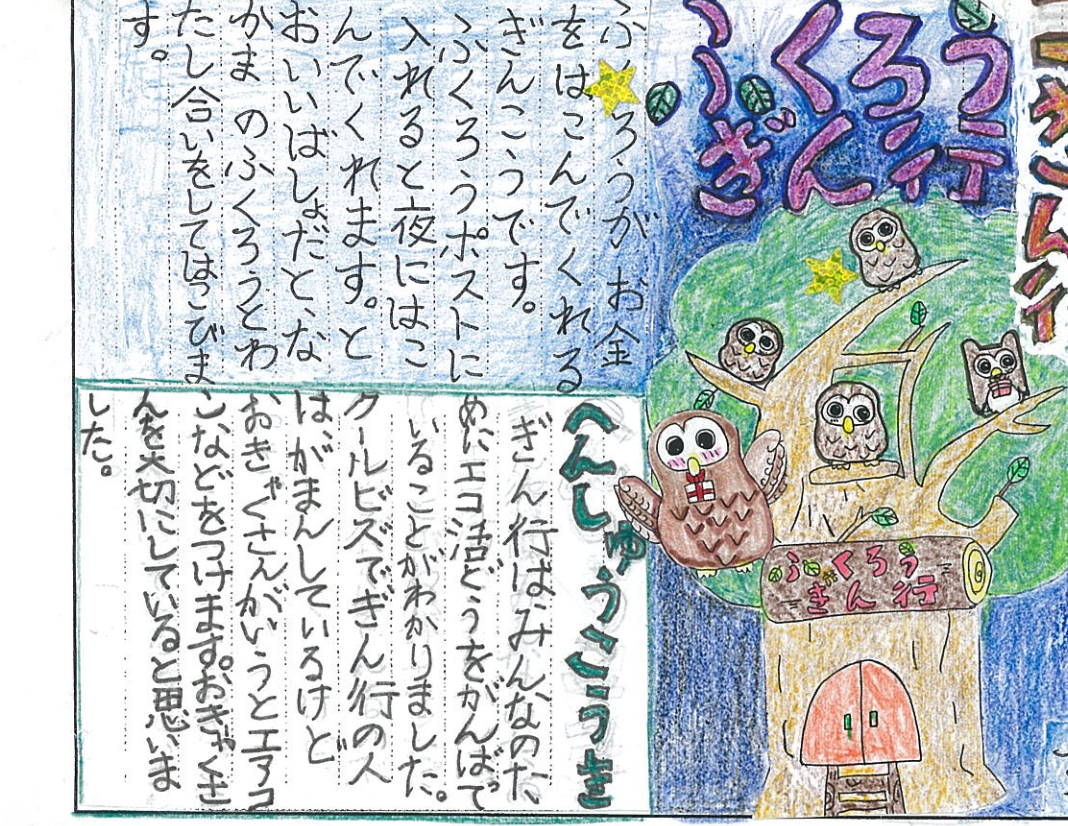 ふくろう
ぎん行
ふくろうがお金
をはこんでくれる
ぎんこうです。
ふくろうポストに
入れると夜にはこ
んでくれます。と
おいばしょだと、な
かまのふくろうとわ
たし合いをしてはこびま
す。
ふくろう
ぎん行
へんしゅうこうき
ぎん行はみんなのた
めにエコ活どうをがんばって
いることがわかりました。
クールビズでぎん行の人
は、がまんしているけど
おきゃくさんがいうとエアコ
ンなどをつけます。おきゃくさ
んを大切にしていると思いま
した。